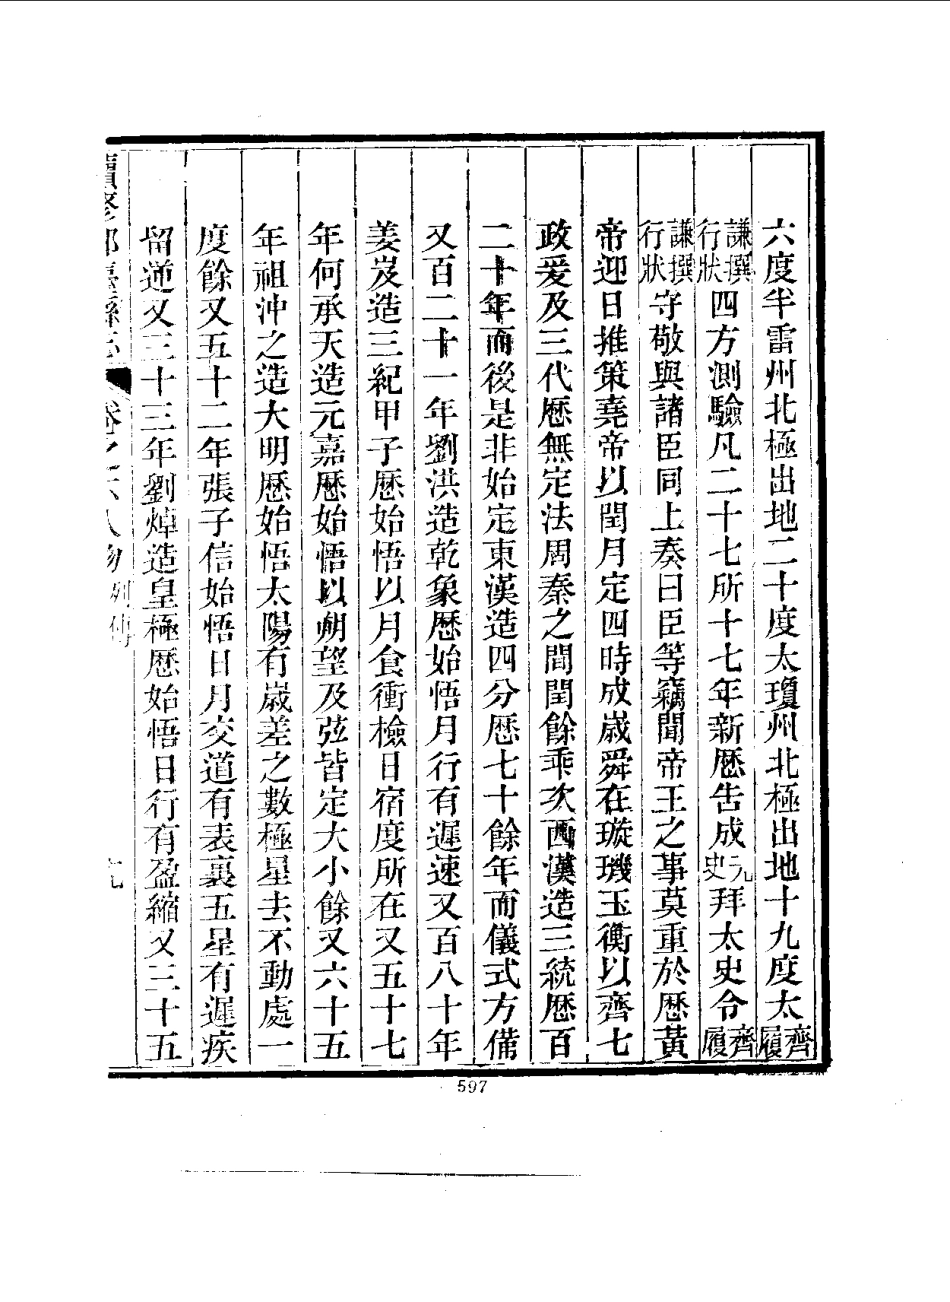 六度半雷州北極出地二十度太瓊州北極出地十九度太齊履
謙撰行狀四方測驗凡二十七所十七年新厯告成元史拜太史令齊履
謙撰行狀守敬與諸臣同上奏曰臣等竊聞帝王之事莫重於厯黃
帝迎日推策堯帝以閏月定四時成歲舜在璇璣玉衡以齊七
政爰及三代厯無定法周秦之間閏餘乖次西漢造三統厯百
二十年而後是非始定東漢造四分厯七十餘年而儀式方備
又百二十一年劉洪造乾象厯始悟月行有遲速又百八十年
姜岌造三紀甲子厯始悟以月食衝檢日宿度所在又五十七
年何承天造元嘉厯始悟以朔望及弦皆定大小餘又六十五
年祖沖之造大明厯始悟太陽有歲差之數極星去不動處一
度餘又五十二年張子信始悟日月交道有表裏五星有遲疾
留逆又三十三年劉焯造皇極厯始悟日行有盈縮又三十五
續修 臺縣志 卷之六人物 列傳
597